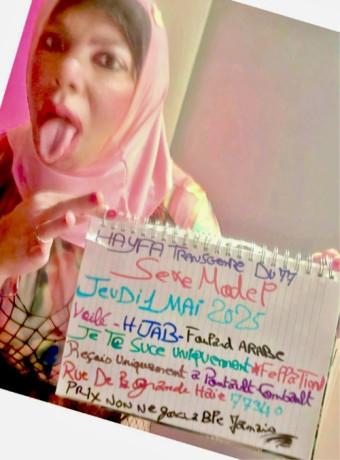 HAYFA TRANSGENRE DU 77
Sexe Model
JeuDi 1 MAI 2025
Voilé - HIJAB - Foulard ARABE
Je Te Suce uniquement #FellaTion
Reçois Uniquement à Pontault Combault
Rue De la grande Haie 77340
PRIX NON Négociable Jamais